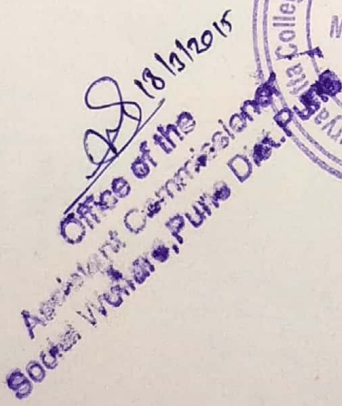 18/3/2015
Office of the
Assistant Commissioner
Social Welfare, Pune Dist. Pune
Colle